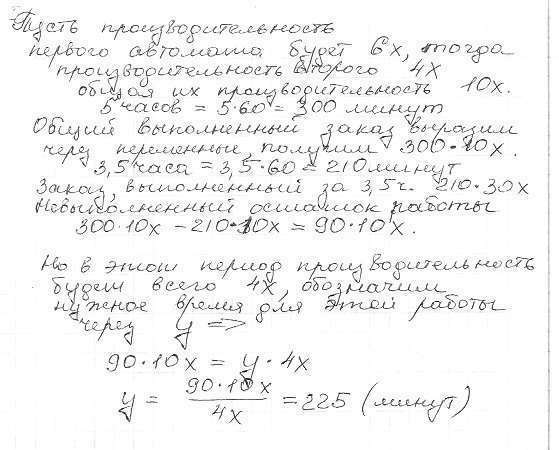 Пусть производительность
первого автомата будет 6x, тогда
производительность второго 4x
общая их производительность 10x.
5 часов = 5·60 = 300 минут
Общий выполненный заказ выразим
через переменные, получим 300·10x.
3,5 часа = 3,5·60 = 210 минут
Заказ, выполненный за 3,5ч. 210·30x
Невыполненный остаток работы
300·10x – 210·10x = 90·10x.
Но в этот период производительность
будет всего 4x, обозначим
нужное время для этой работы
через y =>
90·10x = y·4x
y = 90·10x / 4x = 225 (минут)